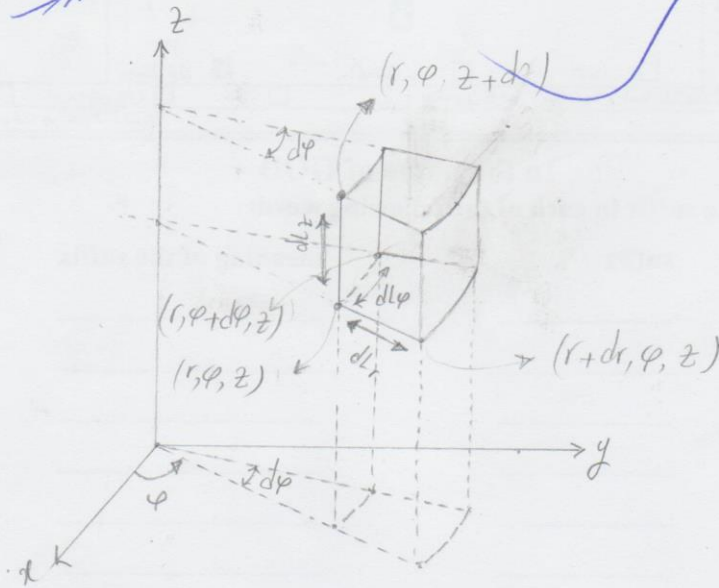 z
(r, φ, z+dz)
dφ
dLz
dLφ
(r, φ+dφ, z)
(r, φ, z)
dLr
(r+dr, φ, z)
y
dφ
φ
x